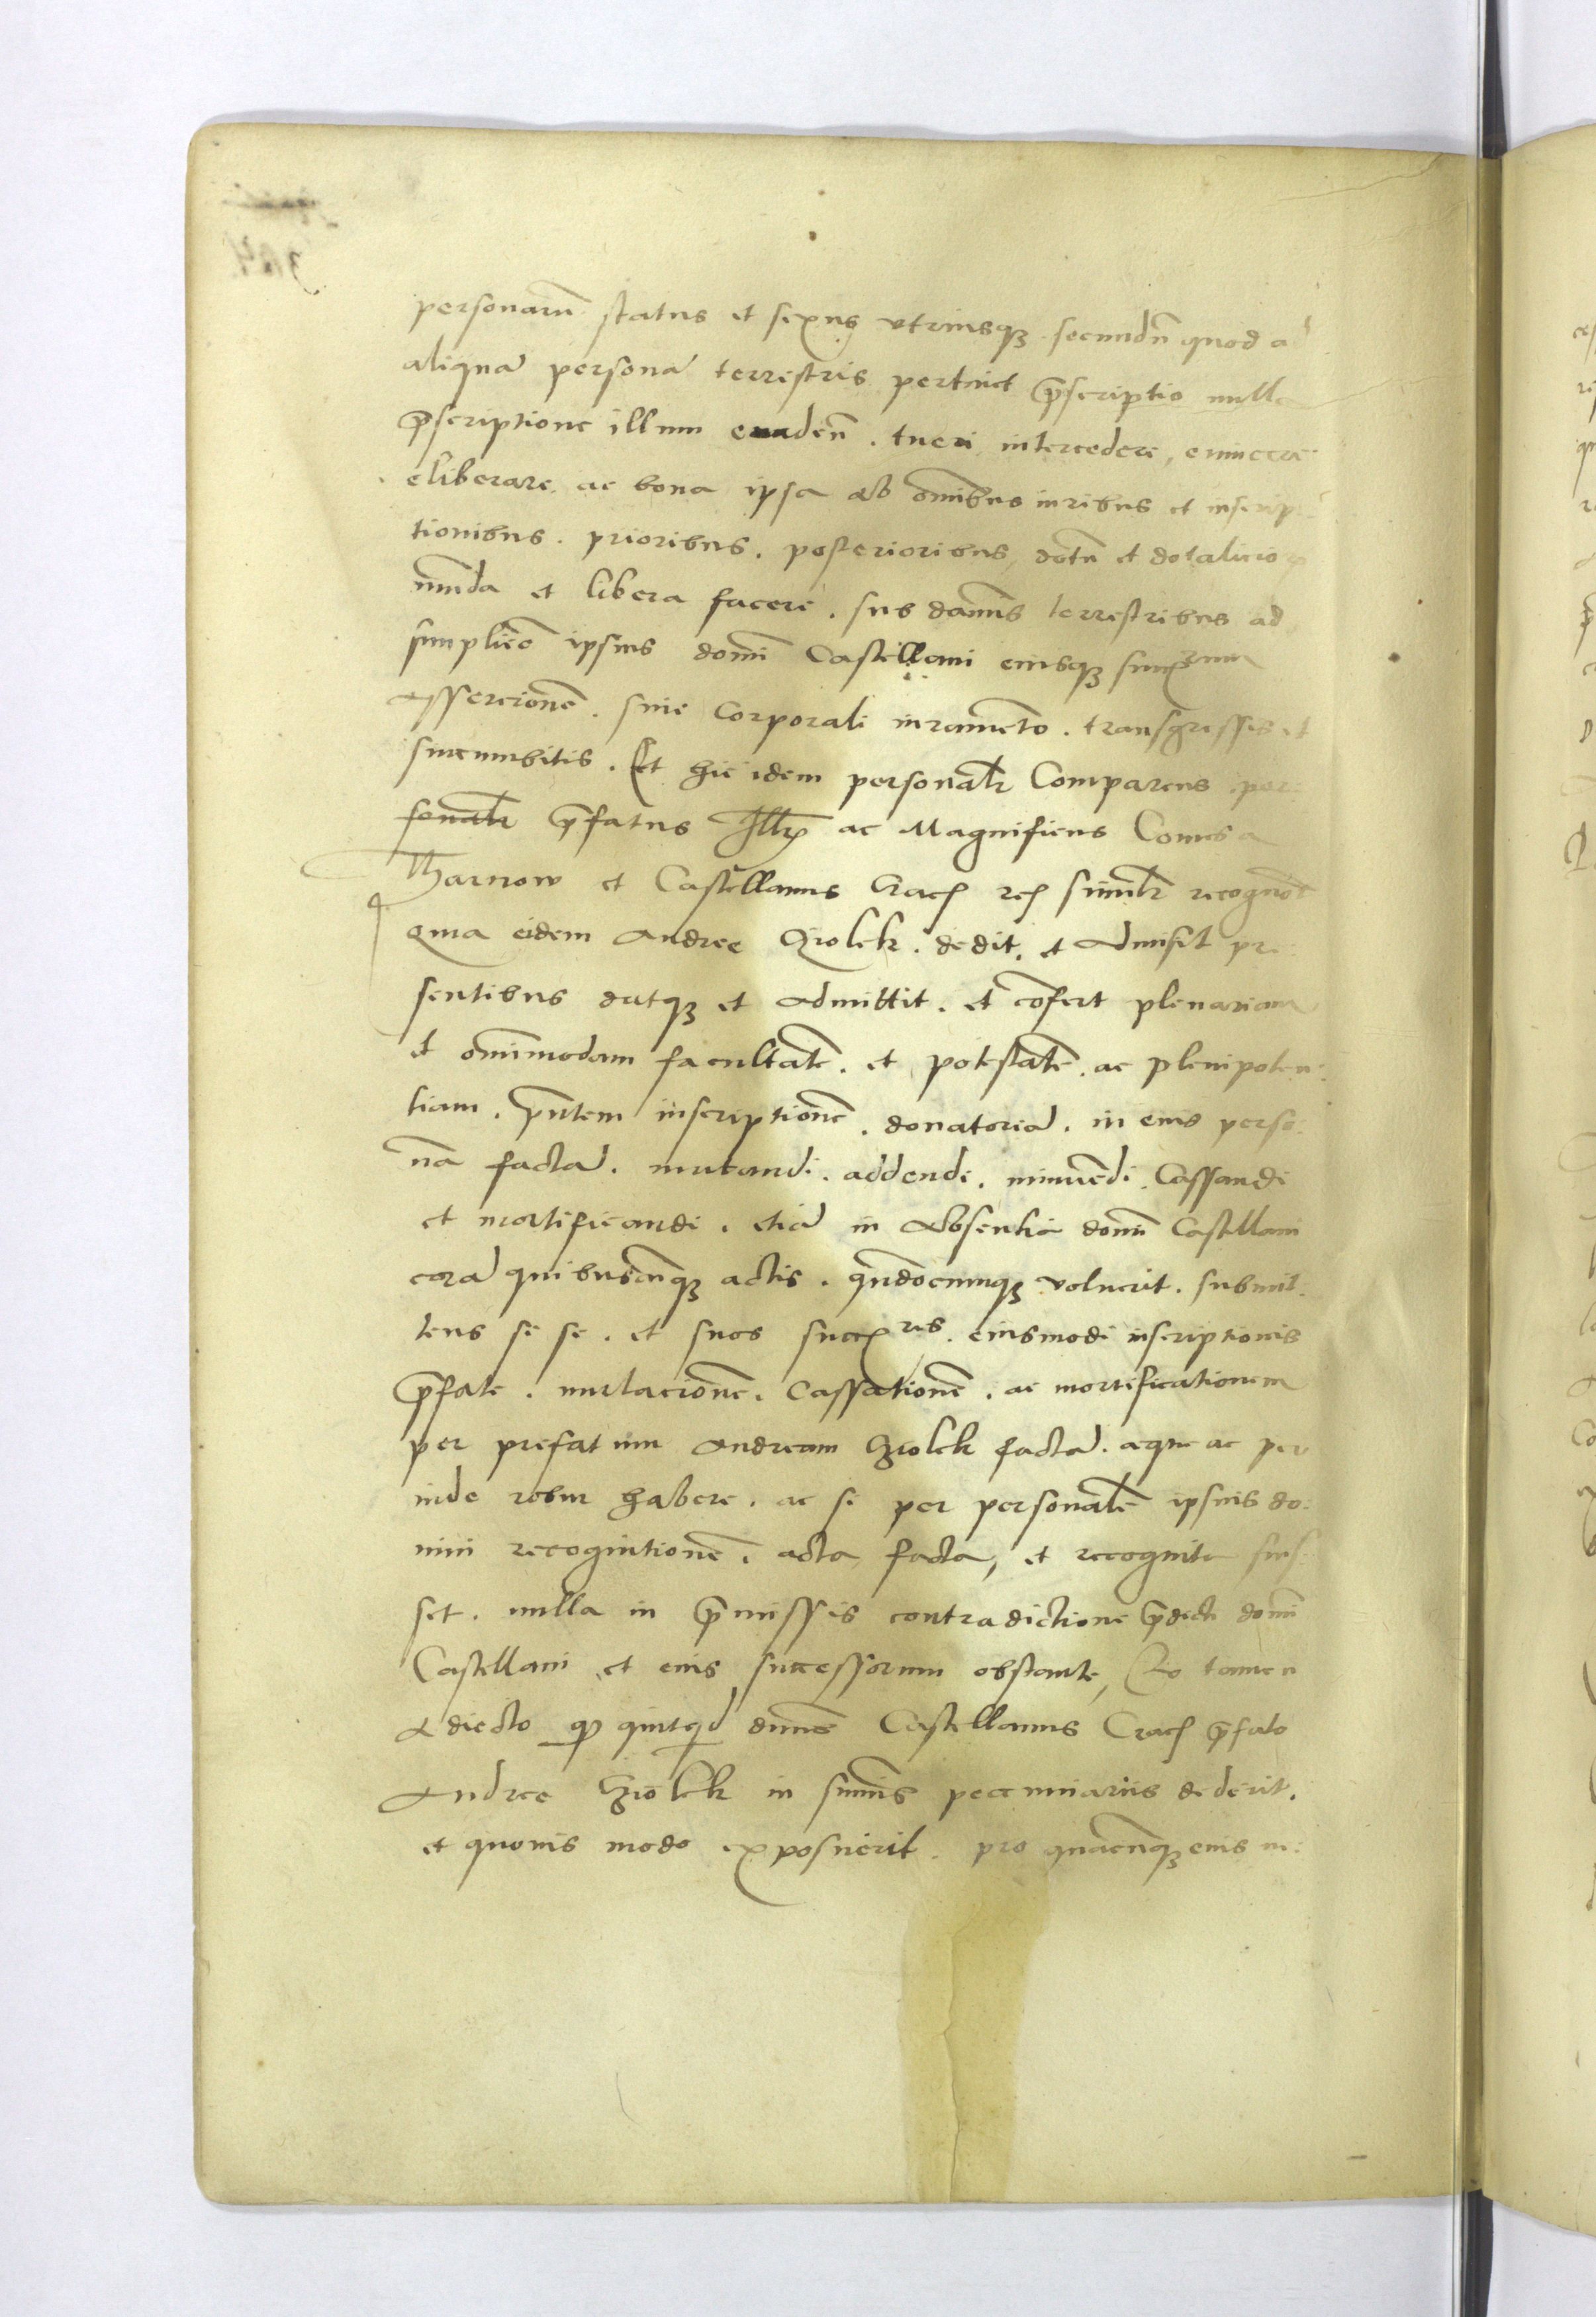 personarũ status et sexus vtriusqꝫ secundũ quod ad
aliquã personã terrestris pertinet p̃scriptio nulla
p̃scriptione illum euadeñ. tueri, intercedere, euincere
eliberare, ac bona ipsa ab om̃ibus iuribus et inscrip
tionibus. prioribus. posterioribus, dotũ et dotalicior
mũda et libera facere. sub damñis terrestribus ad
simplicẽ ipsius domĩ Castellani eiusqꝫ
Assercionẽ. sine Corporali iuramẽto. transgressis et
succumbitis. Et hic idem personalr Comparens per
sonalr p̃fatus Illr ac Magnificus Comes a
Tharnow et Castellanus Crac recognoṽ
Quia eidem Andree dedit, et Admisit pre:
sentibus datqꝫ et Admittit. et cõfert plenariam
et om̃imodam facultatẽ. et potestatẽ. ac plenipoten:
tiam. p̃ntem inscriptionẽ. donatoriã. in eius perso:
nã factã. mutandi. addendi. minuẽdi. Cassandi
et mortificandi. etiã in Absentia domĩ Castellani
corã quibuscũqꝫ actis. qũdocumqꝫ voluerit. submit:
tens se se. et suos succ͠res. eiusmodi inscriptionis
p̃fate. mutacionẽ. Cassationẽ. ac mortificationem
per prefatum Andream factã. aque ac per
inde robur habere. ac si per personalẽ ipsius do:
mini recognitionẽ. acta, facta, et recognita fuis:
set. nulla in p̃missis contradictione p̃dicti domĩ
Castellani et eius successorum obstante, Eo tamen
Adiecto qɔ quitqd dñus Castellanus Crac p̃fato
Andree in sum̃is pecuniariis dederit.
et quouis modo exposuerit. pro quacũqꝫ eius